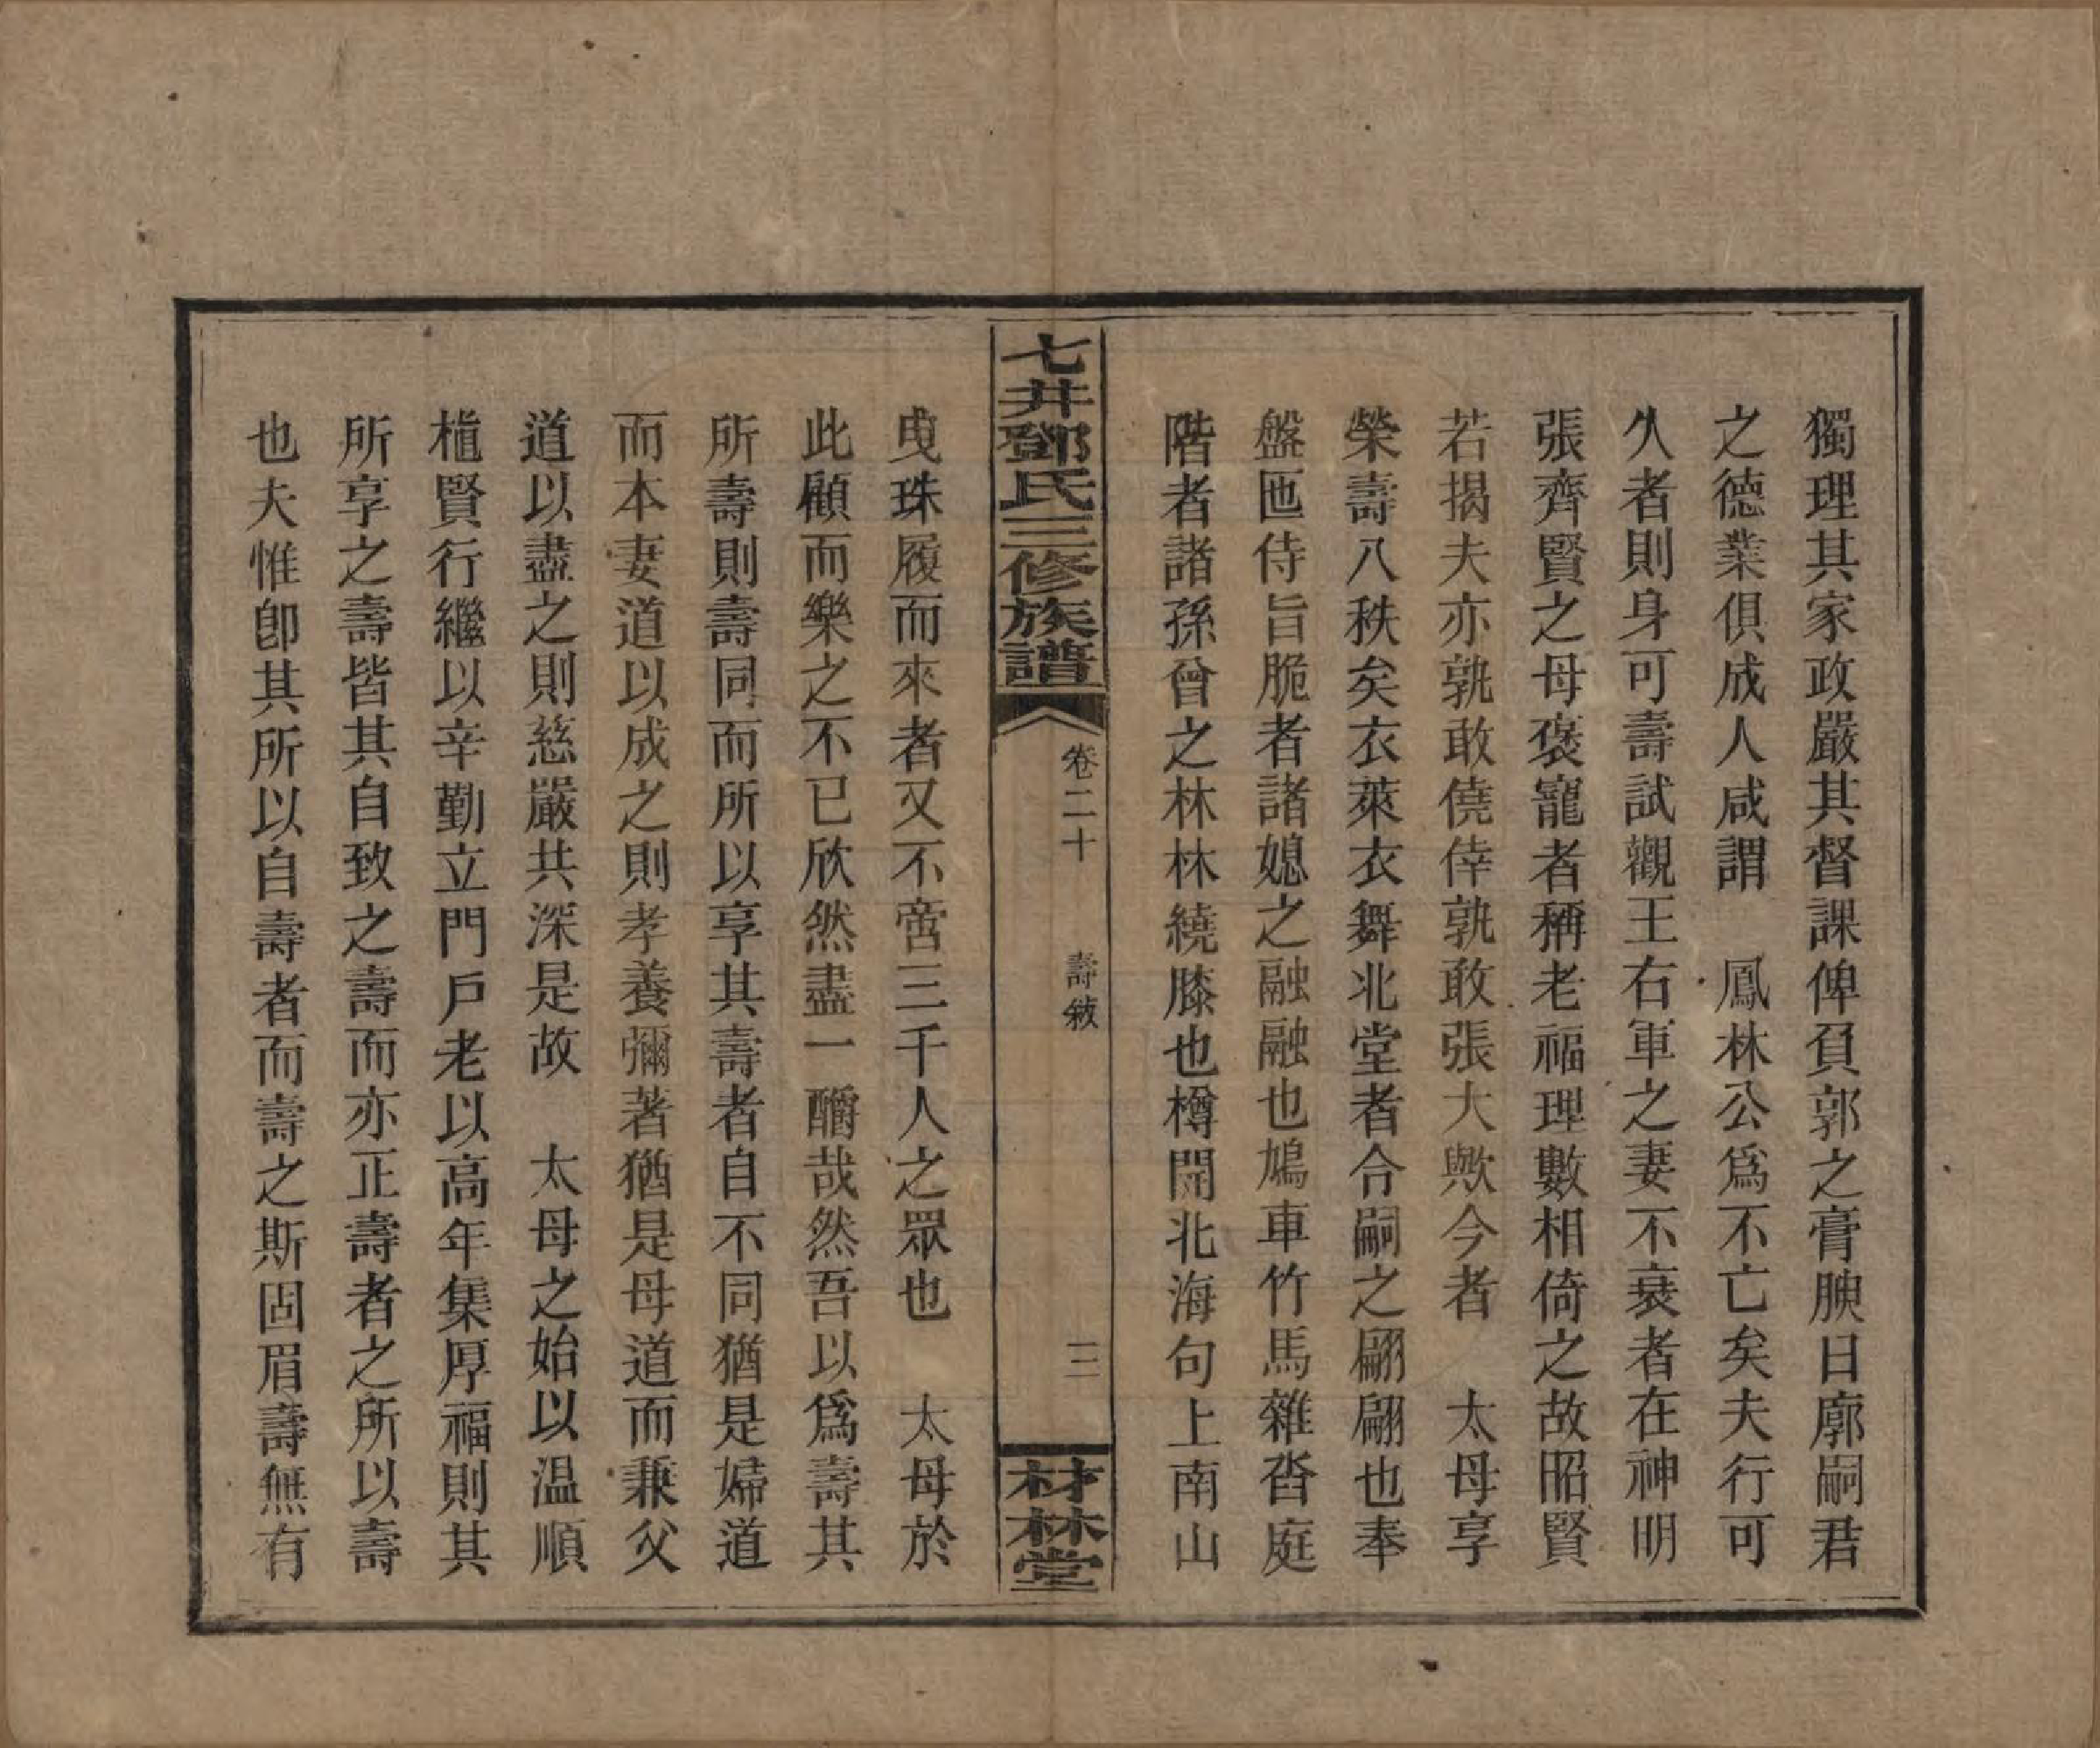 獨理其家政嚴其督課俾負郭之膏腴日廓嗣君
之德業俱成人咸謂　鳳林公爲不亡矣夫行可
久者則身可壽試觀王右軍之妻不衰者在神明
張齊賢之母褒寵者稱老福理數相倚之故昭賢
若揭夫亦孰敢僥倖孰敢張大歟今者　太母享
榮壽八秩矣衣萊衣舞北堂者合嗣之翩翩也奉
盤匜侍旨脆者諸媳之融融也鳩車竹馬雜沓庭
階者諸孫曾之林林繞膝也樽開北海句上南山
七井鄧氏三修族譜
卷二十　壽敘
二
材林堂
曳珠履而來者又不啻三千人之眾也　太母於
此顧而樂之不已欣然盡一醻哉然吾以爲壽其
所壽則壽同而所以享其壽者自不同猶是婦道
而本妻道以成之則孝養彌著猶是母道而兼父
道以盡之則慈嚴共深是故　太母之始以温順
植賢行繼以辛勤立門戶老以高年集厚福則其
所享之壽皆其自致之壽而亦正壽者之所以壽
也夫惟卽其所以自壽者而壽之斯固眉壽無有